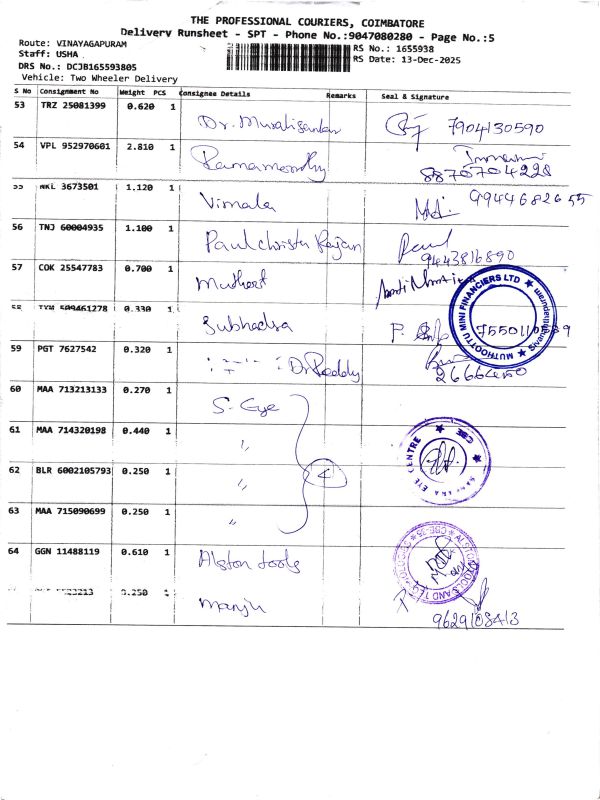 THE PROFESSIONAL COURIERS, COIMBATORE
Delivery Runsheet - SPT - Phone No.:9047080280 - Page No.:5
Route: VINAYAGAPURAM
Staff: USHA
RS No.: 1655938
DRS No.: DCJB165593805
RS Date: 13-Dec-2025
Vehicle: Two Wheeler Delivery
S No Consignment No Weight PCS Consignee Details Remarks Seal & Signature
53 TRZ 25081399 0.620 1 Dr. Muralisankar 7904130590
54 VPL 952970601 2.810 1 Ramamoorthy 8870704228
55 NKL 3673501 1.120 1 Vimala 9944682655
56 TNJ 60004935 1.100 1 Paulchrista Rajan Paul 9443816890
57 COK 25547783 0.700 1 Muthoot
MUTHOOTTU MINI FINANCIERS LTD
58 509461278 0.330 1 Subhadra P.
59 PGT 7627542 0.320 1 Dr Reddy
60 MAA 713213133 0.270 1 S. Eye
61 MAA 714320198 0.440 1 "
EYE CENTRE CBE
62 BLR 6002105793 0.250 1 " 4
63 MAA 715090699 0.250 1 "
64 GGN 11488119 0.610 1 Alston tools
CBE-35
0.250 1 Manju 9629108413